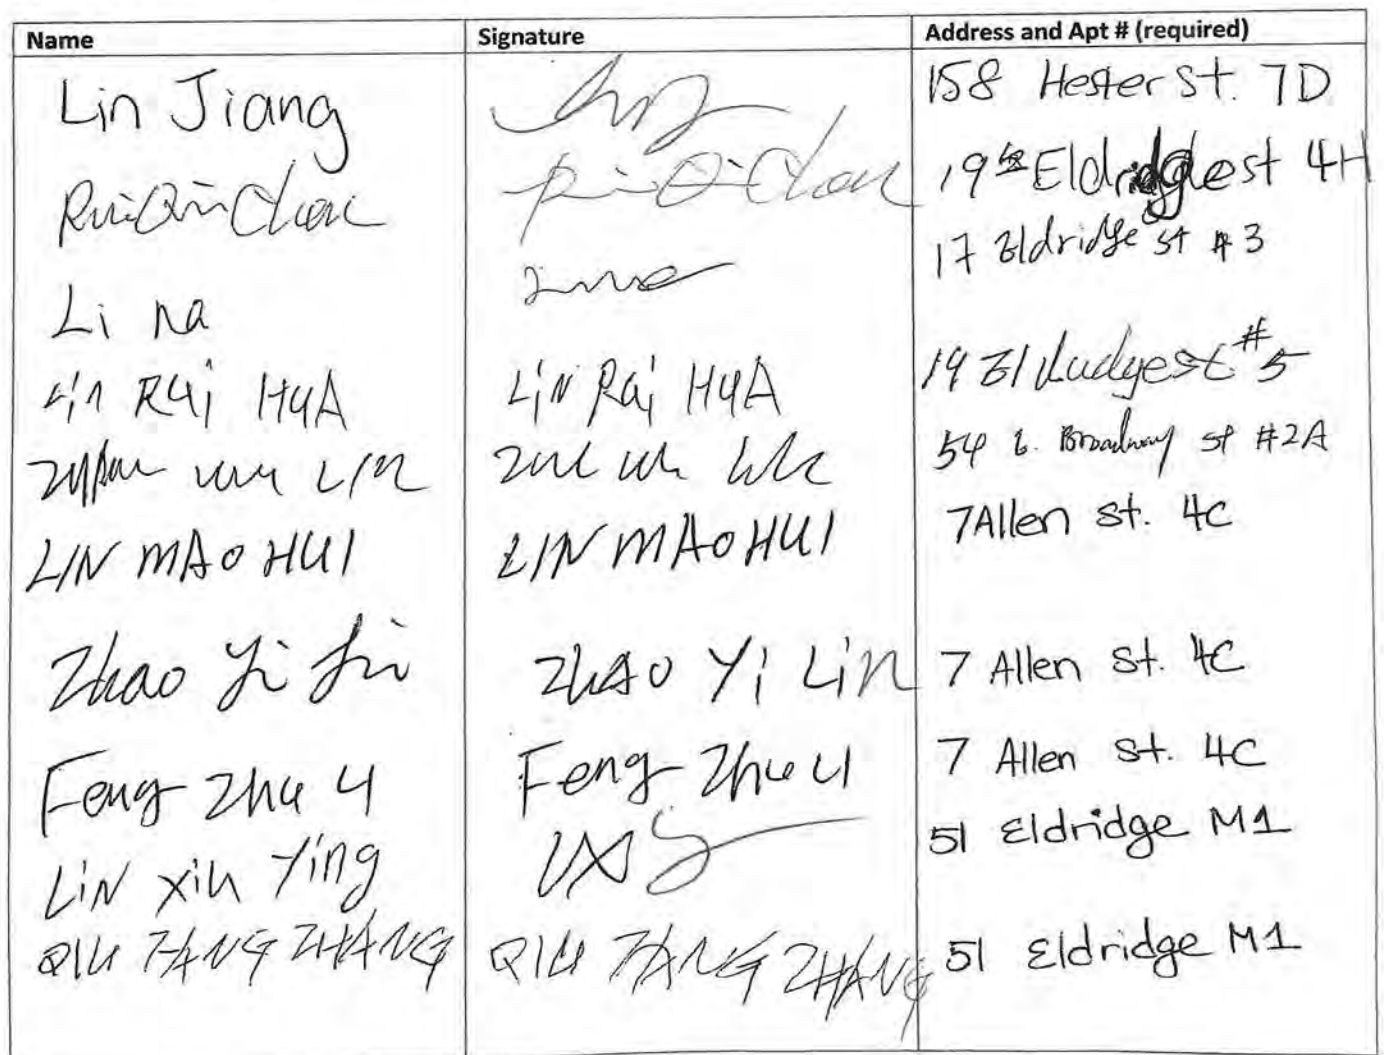 Name Signature Address and Apt # (required)
Lin Jiang 158 Hester St. 7D
RuiQin Chen Rui Qi Chen 19 Eldridge st 4H
Li na 17 Eldridge st #3
Lin Rui HUA LiN Rui HUA 19 Eldridge st #5
LIN 54 E. Broadway st #2A
LIN MAO HUI LIN MAO HUI 7 Allen St. 4C
Zhao Yi Lin ZhAO Yi Lin 7 Allen St. 4C
Feng Zhu Li Feng Zhu Li 7 Allen St. 4C
LiN Xin Ying LXY 51 Eldridge M1
QIU FANG ZHANG QIU FANG ZHANG 51 Eldridge M1